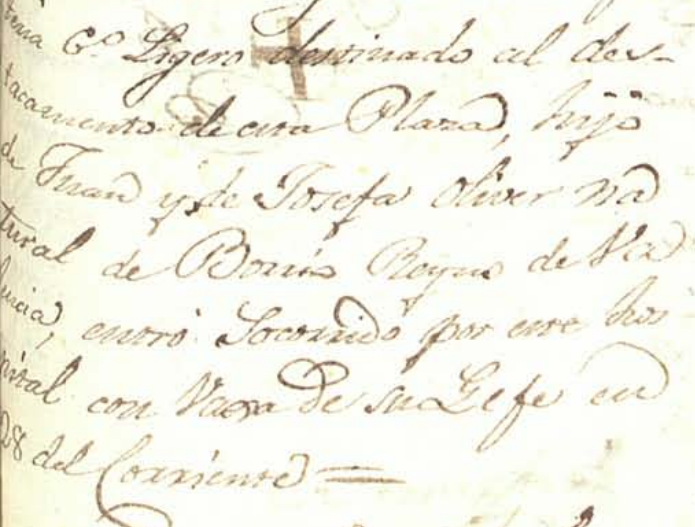 6º Ligero destinado al des-
tacamento de esta Plaza, hijo
de Juan y de Josefa Oliver na
tural de Reyno de Va
lencia, entró Socorrido por este hos
pital con Vaxa de su Gefe en
28 del Corriente =